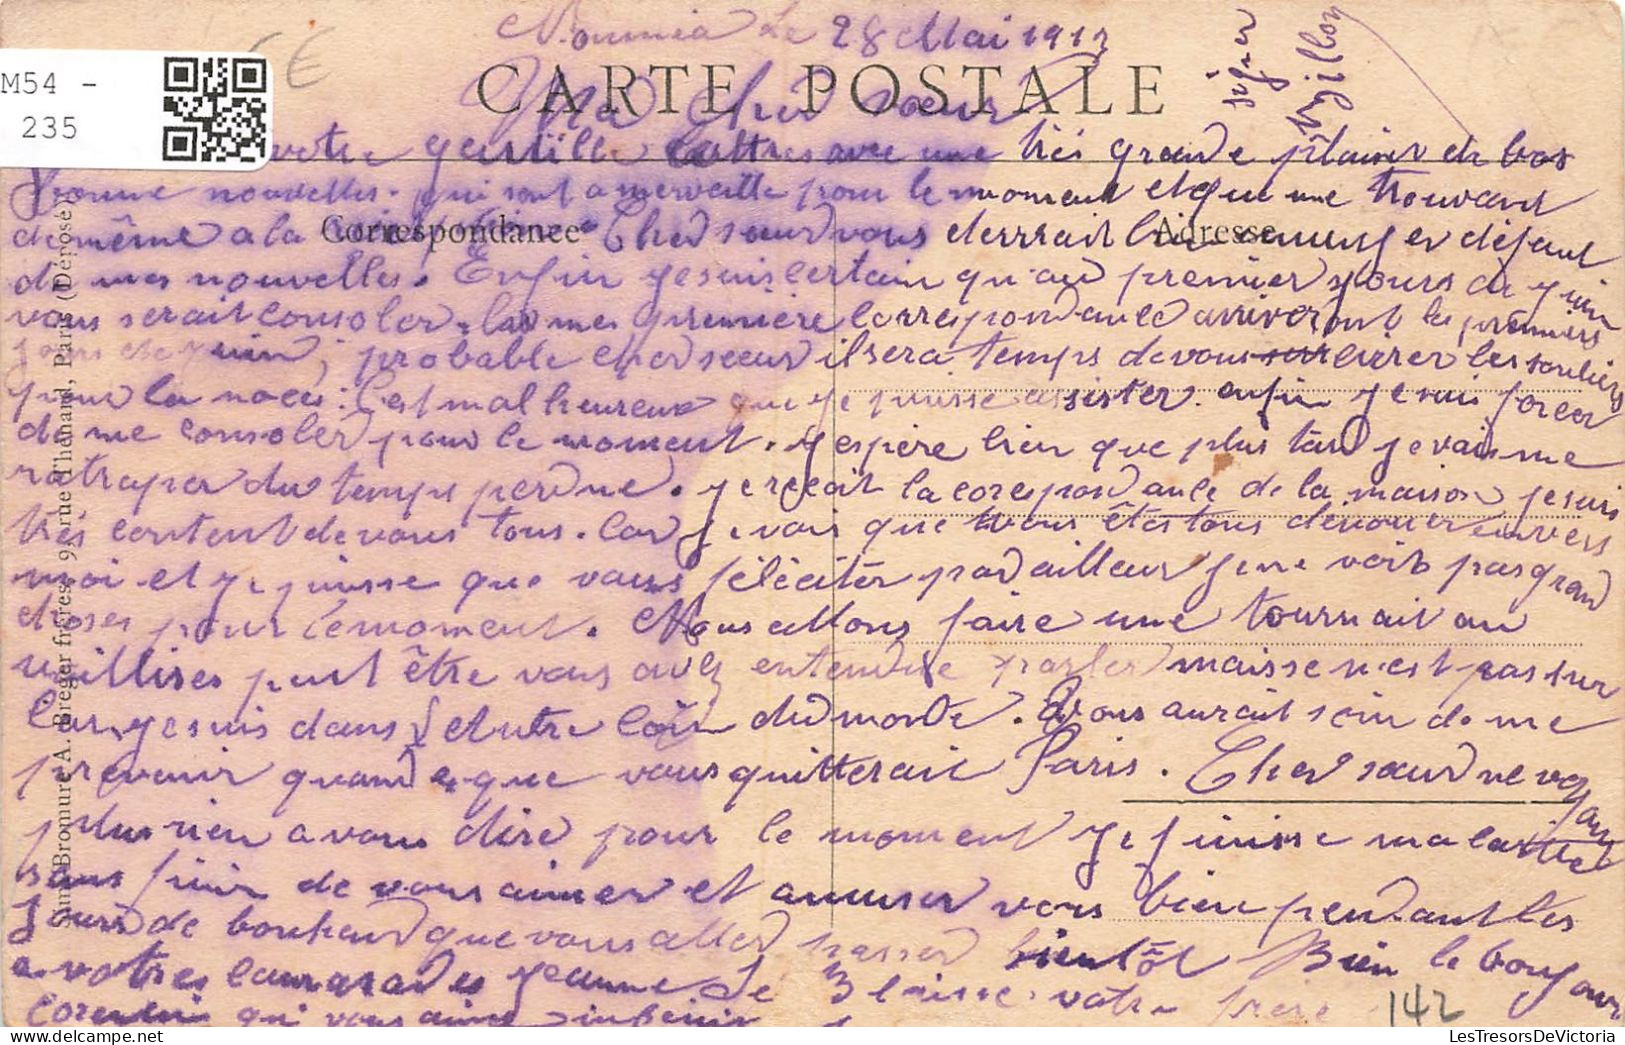 Le 28 Mai 1913
M54 -
235
CARTE POSTALE
Ma Cher sœur
signer
votre gentille lettres avec une très grande plaisir de vos
bonne nouvelles. qui sont a merveille pour le moment et que une trouvant
de même a la Cher sœur vous derrait bien
Correspondance
Adresse
de mes nouvelles. Enfin je suis certain qu'au premier jours de juin
vous serait consoler. Car mes première correspondance arriveront les premiers
jours de juin, probable cher sœur il sera temps de vous cirer les souliers
pour la noces. C'est malheureux que je puisse assister. enfin je suis forcer
de me consoler pour le moment. j'espère bien que plus tard je vais me
ratraper du temps perdue. je reçoit la corespondance de la maison je suis
très content de vous tous. Car je vois que vous êtes tous dévouer envers
moi et je puisse que vous féléciter par d'ailleur je ne voit pas grand
choses pour le moment. Nous allons faire une tournait au
peut être vous avez entendue parler mais se n'est pas sur
Car je suis dans l'autre coin du monde. Vous aurait soin de me
prevenir quand que vous quitterait Paris. Cher sœur ne voyant
plus rien a vous dire pour le moment je finisse ma lattre
sans finir de vous aimer et amuser vous bien pendant les
jours de bonheur que vous aller passer bientôt Bien le bonjour
a votres camarades Jeanne Le Blaisse. votre frère
qui vous aime
142
Sim. Bromure A. Breger frères, 9 rue Thénard, Paris (Déposé)
LesTresorsDeVictoria